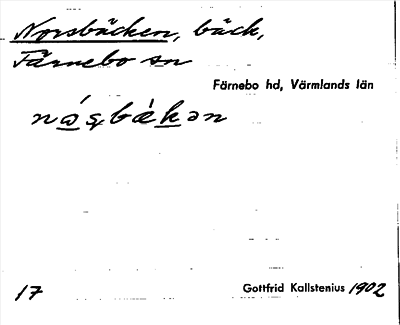 Norsbäcken, bäck,
Färnebo sn
Färnebo hd, Värmlands län
17
Gottfrid Kallstenius 1902